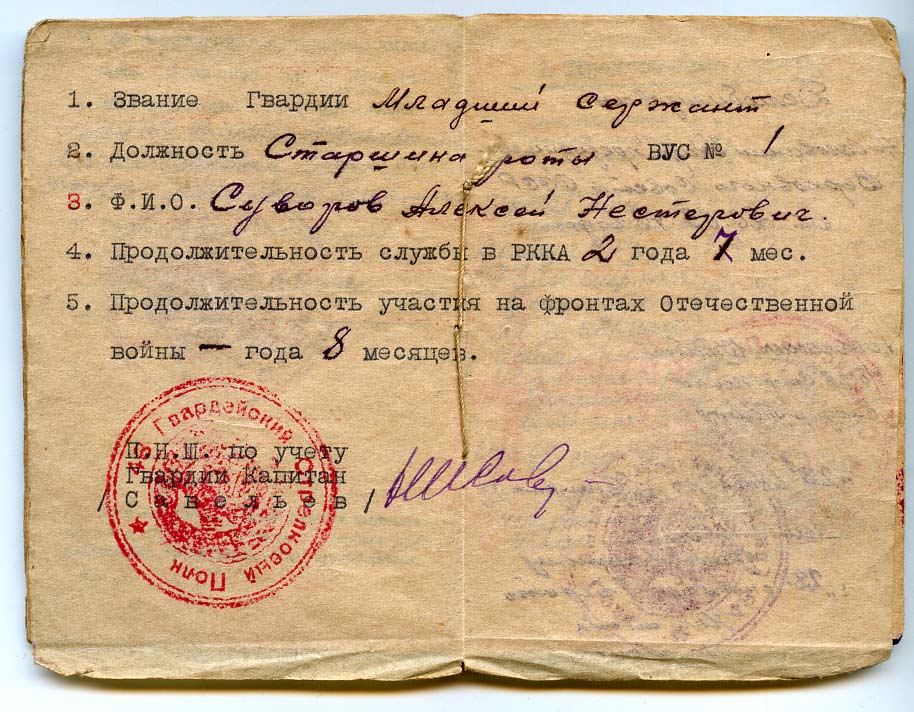 1. Звание Гвардии Младший сержант
2. Должность Старшина роты ВУС № 1
3. Ф.И.О. Суворов Алексей Нестерович.
4. Продолжительность службы в РККА 2 года 7 мес.
5. Продолжительность участия на фронтах Отечественной
войны — года 8 месяцев.
П.Н.Ш. по учету
Гвардии Капитан
/Савельев/
Гвардейский Стрелковый Полк